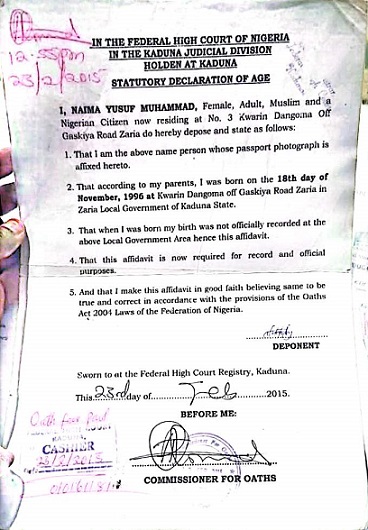 12:55pm
23/2/2015
IN THE FEDERAL HIGH COURT OF NIGERIA
IN THE KADUNA JUDICIAL DIVISION
HOLDEN AT KADUNA
STATUTORY DECLARATION OF AGE
I, NAIMA YUSUF MUHAMMAD, Female, Adult, Muslim and a
Nigerian Citizen now residing at No. 3 Kwarin Dangoma Off
Gaskiya Road Zaria do hereby depose and state as follows:
1. That I am the above name person whose passport photograph is
affixed hereto.
2. That according to my parents, I was born on the 18th day of
November, 1996 at Kwarin Dangoma off Gaskiya Road Zaria in
Zaria Local Government of Kaduna State.
3. That when I was born my birth was not officially recorded at the
above Local Government Area hence this affidavit.
4. That this affidavit is now required for record and official
purposes.
5. And that I make this affidavit in good faith believing same to be
true and correct in accordance with the provisions of the Oaths
Act 2004 Laws of the Federation of Nigeria.
DEPONENT
Sworn to at the Federal High Court Registry, Kaduna.
This 23rd day of Feb 2015.
BEFORE ME:
Oath fees Paid
KADUNA
CASHIER
23/2/2015
COMMISSIONER FOR OATHS